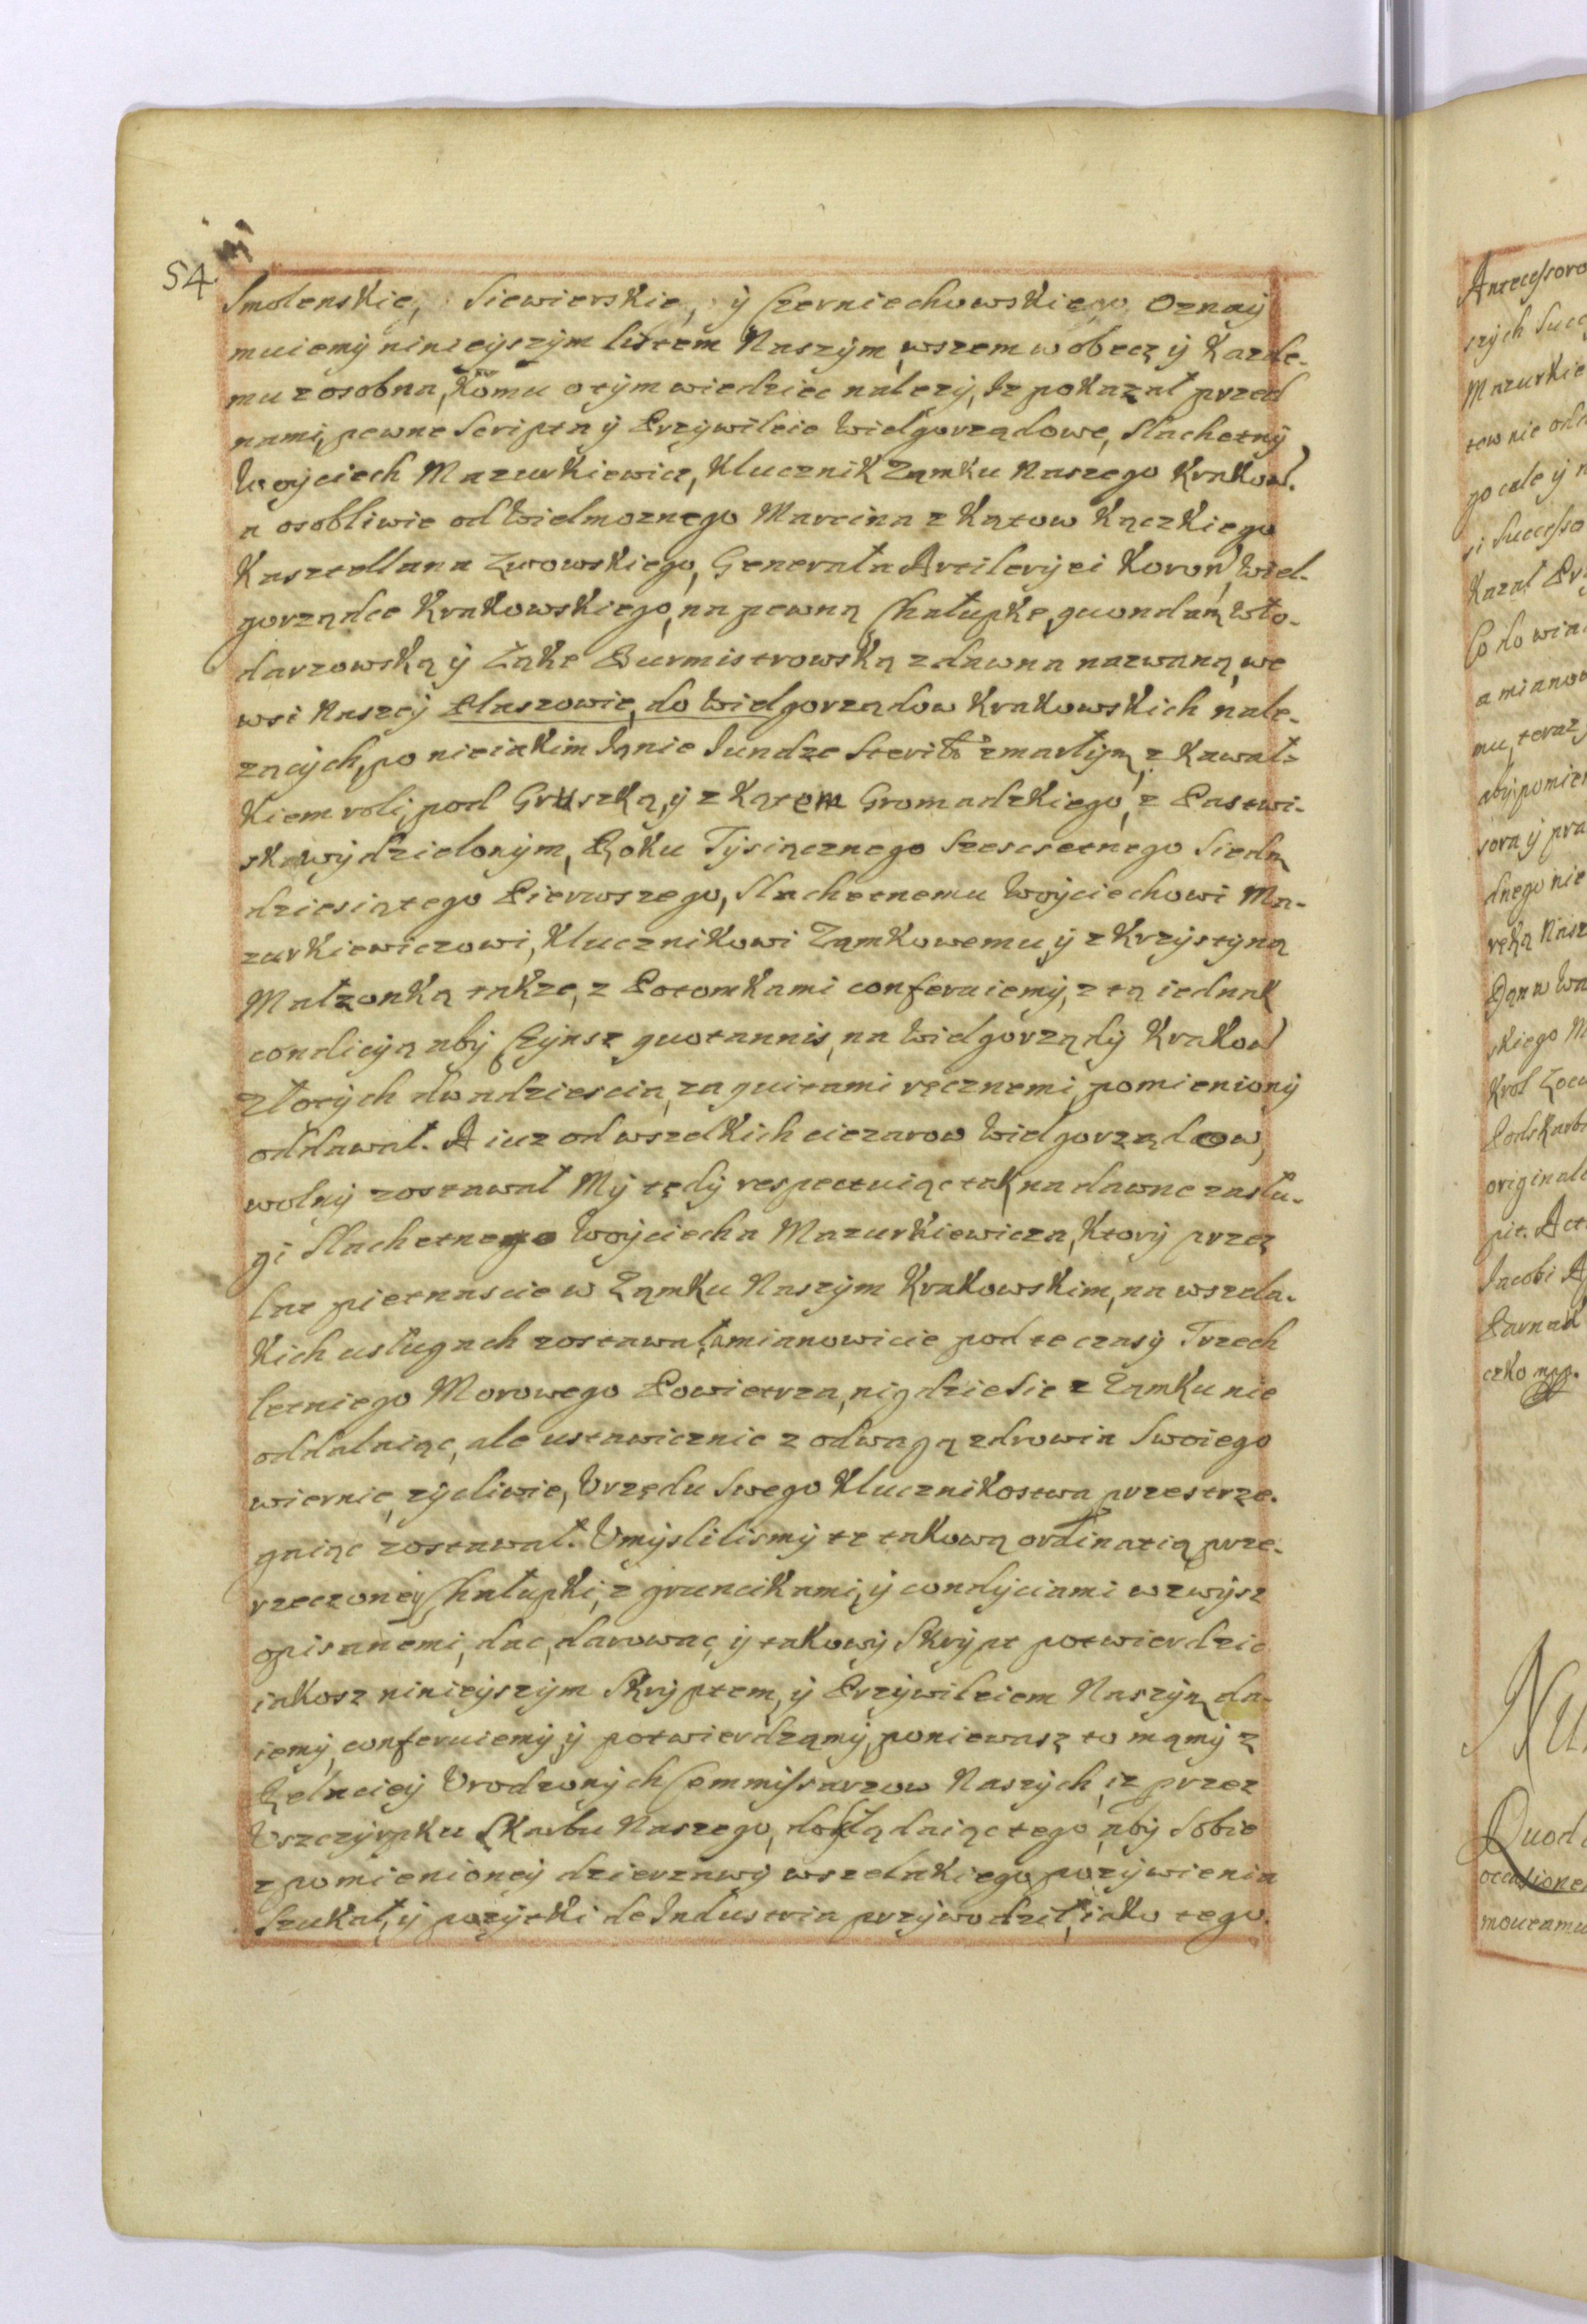 54
Smolenskie, Siewierskie, ÿ Czerniechowskiego Oznaÿ
muiemÿ ninieÿszÿm listem Naszÿm, wszem wobecz ÿ Kazde-
mu zosobna, Komu otÿm wiedziec nalezÿ, Iz pokazał przed
nami, pewne Scripta ÿ Przÿwileie Wielgorządowe, Slachetnÿ
Woÿciech Mazurkiewicz, Klucznik Zamku Naszego Krakow.
a osobliwie od Wielmoznego Marcina z Kątow Kączkiego
Kasztellana Lwowskiego, Generała Artilerÿei Koron, Wiel-
gorządce Krakowskiego, na pewną Chałupke, quondam Wło-
darzowską ÿ Łąke Burmistrowską zdawna nazwaną, we
wsi Naszeÿ Płaszowie, do Wielgorządow Krakowskich nale-
zącÿch, po nieiakim Ianie Iundze Sterilo zmarłÿm, z Kawał-
kiem roli, pod Gruszką, ÿ z Kątem Gromadzkiego, z Pastwi-
ska wÿdzielonÿm, Roku Tÿsiącznego Szescsetnego Siedm
dziesiątego Pierwszego, Slachetnemu Woÿciechowi Ma-
zurkiewiczowi, Klucznikowi Zamkowemu, ÿ z Krzÿstÿną
Małzonką takze, z Potomkami conferuiemÿ, z tą iednak
condicÿą abÿ Czÿnsz quotannis, na Wielgorządÿ Krakow
złotÿch dwadziescia, za quitami ręcznemi, pomienionÿ
oddawał. A iuz od wszelkich ciezarow Wielgorządow,
wolnÿ zostawał Mÿ tedÿ respectuiąc tak na dawne zasłu-
gi Slachetnego Woÿciecha Mazurkiewicza, Ktorÿ przez
lat pietnascie w Zamku Naszÿm Krakowskim, na wszela-
kich usługach zostawał, a mianowicie pod te czasÿ Trzech
letniego Morowego Powietrza, nigdzie sie z Zamku nie
oddalaiąc, ale ustawicznie z odwagą zdrowia Swoiego
wiernie, zÿcliwie, Urzędu Swego Klucznikostwa przestrze-
gaiąc zostawał. Umÿslilismÿ te takową ordinatią prze-
rzeczoneÿ Chałupki, z gruncikami, ÿ condÿciami wzwÿsz
opisanemi, dac, darowac, ÿ takowÿ Skrÿpt potwierdzic
iakosz ninieÿszÿm Skrÿptem, ÿ Przÿwileiem Naszÿm da-
iemÿ, conferuiemÿ, ÿ potwierdzamÿ, poniewasz to mamÿ z
Relacieÿ Urodzonÿch Commissarzow Naszÿch, iz przez
Uszczÿrpku Skarbu Naszego, dokładaiąc tego, abÿ Sobie
z pomienioneÿ dzierzawÿ wszelakiego pozÿwienia
Szukał, ÿ pozÿtki de Industria przÿwodził, iako tego